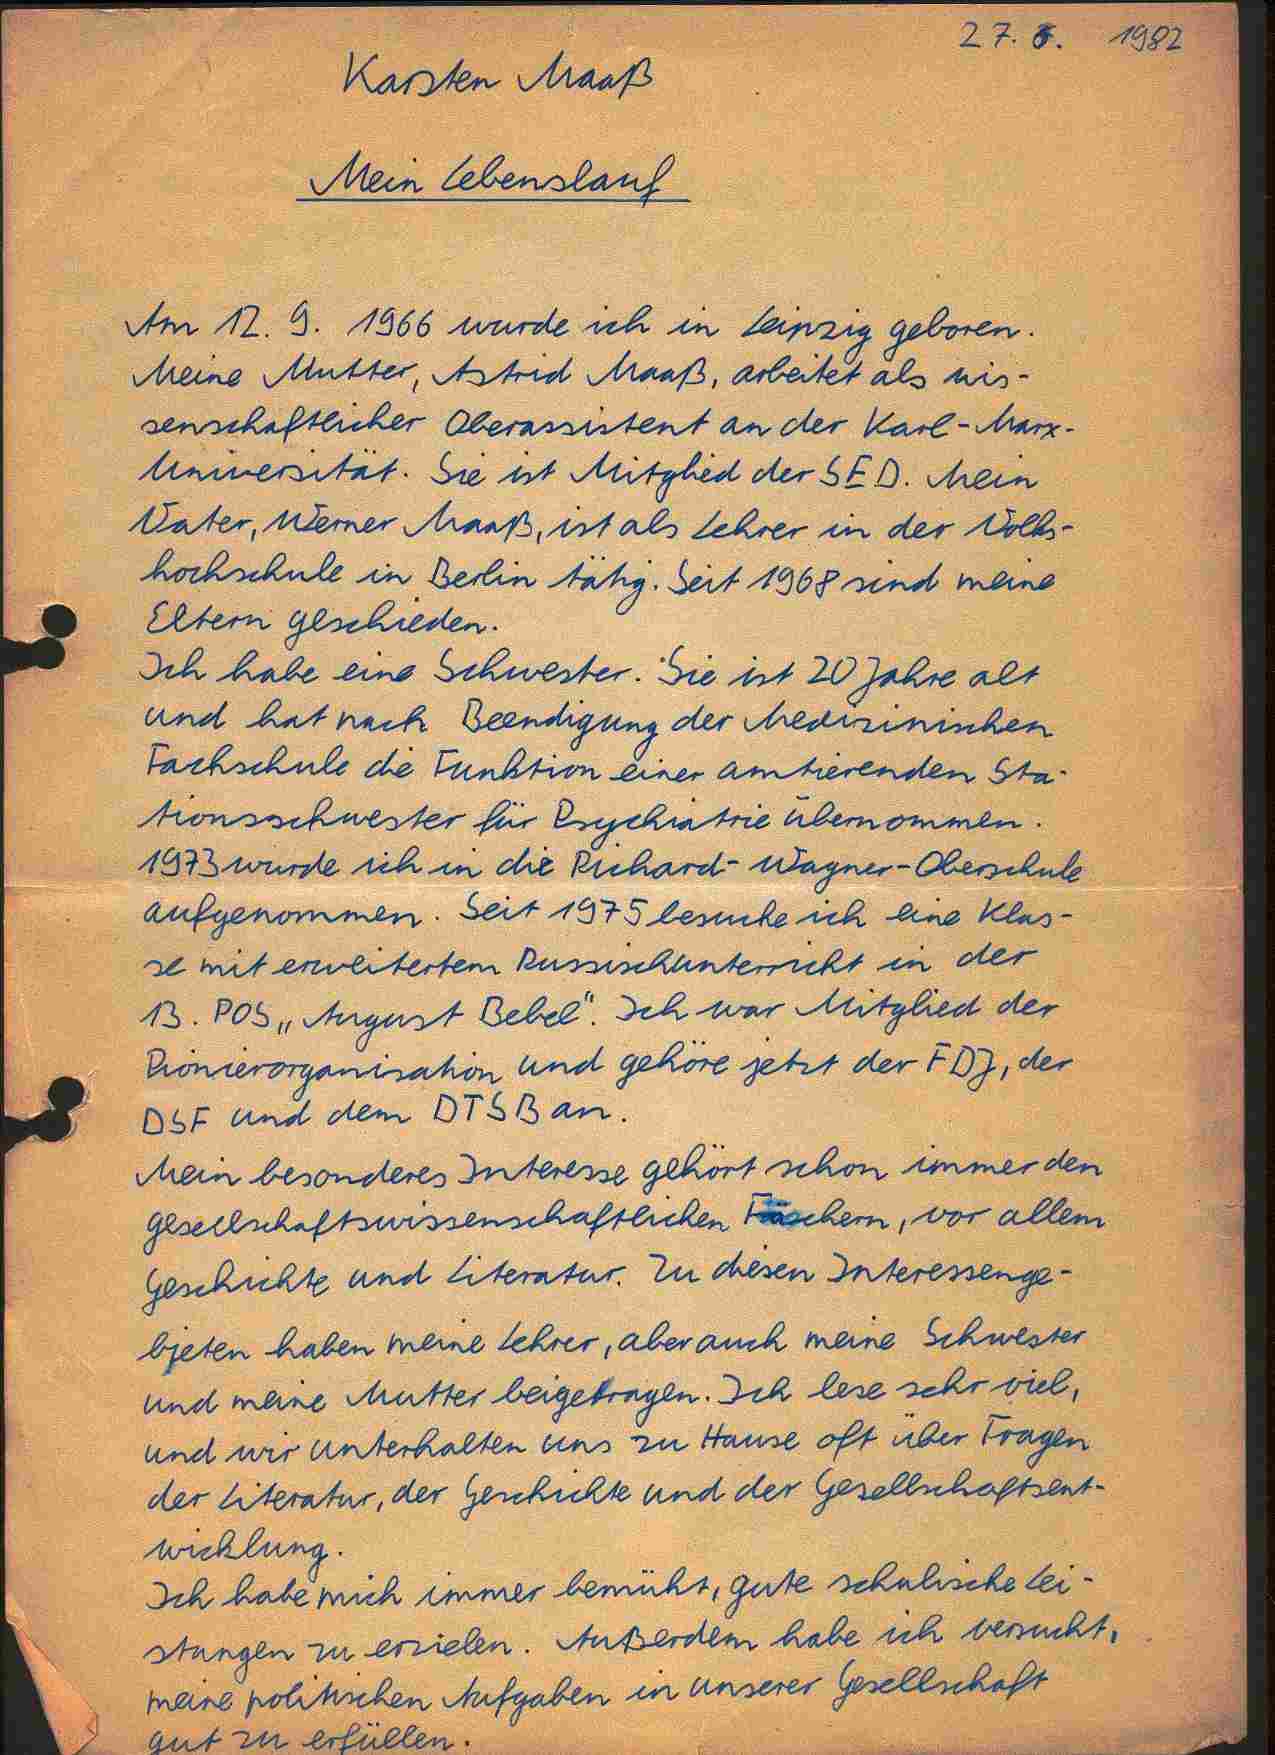 27. 6. 1982
Karsten Maaß
Mein Lebenslauf
Am 12. 9. 1966 wurde ich in Leipzig geboren.
Meine Mutter, Astrid Maaß, arbeitet als wis-
senschaftlicher Oberassistent an der Karl-Marx-
Universität. Sie ist Mitglied der SED. Mein
Vater, Werner Maaß, ist als Lehrer in der Volks-
hochschule in Berlin tätig. Seit 1968 sind meine
Eltern geschieden.
Ich habe eine Schwester. Sie ist 20 Jahre alt
und hat nach Beendigung der Medizinischen
Fachschule die Funktion einer amtierenden Sta-
tionsschwester für Psychiatrie übernommen.
1973 wurde ich in die Richard-Wagner-Oberschule
aufgenommen. Seit 1975 besuche ich eine Klas-
se mit erweitertem Russischunterricht in der
13. POS „August Bebel". Ich war Mitglied der
Pionierorganisation und gehöre jetzt der FDJ, der
DSF und dem DTSB an.
Mein besonderes Interesse gehört schon immer den
gesellschaftswissenschaftlichen Fächern, vor allem
Geschichte und Literatur. Zu diesen Interessenge-
bieten haben meine Lehrer, aber auch meine Schwester
und meine Mutter beigetragen. Ich lese sehr viel,
und wir unterhalten uns zu Hause oft über Fragen
der Literatur, der Geschichte und der Gesellschaftsent-
wicklung.
Ich habe mich immer bemüht, gute schulische Lei-
stungen zu erzielen. Außerdem habe ich versucht,
meine politischen Aufgaben in unserer Gesellschaft
gut zu erfüllen.